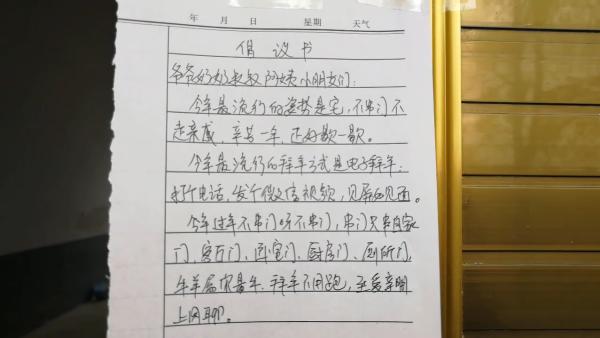 年 月 日 星期 天气
倡议书
爷爷奶奶叔叔阿姨小朋友们：
今年最流行的姿势是宅，不串门不
走亲戚，辛苦一年，正好歇一歇。
今年最流行的拜年方式是电子拜年：
打个电话，发个微信视频，见屏如见面。
今年过年不串门呀不串门，串门只串自家
门，客厅门、卧室门、厨房门、厕所门，
年，拜年不用跑，至爱亲朋
上网聊。